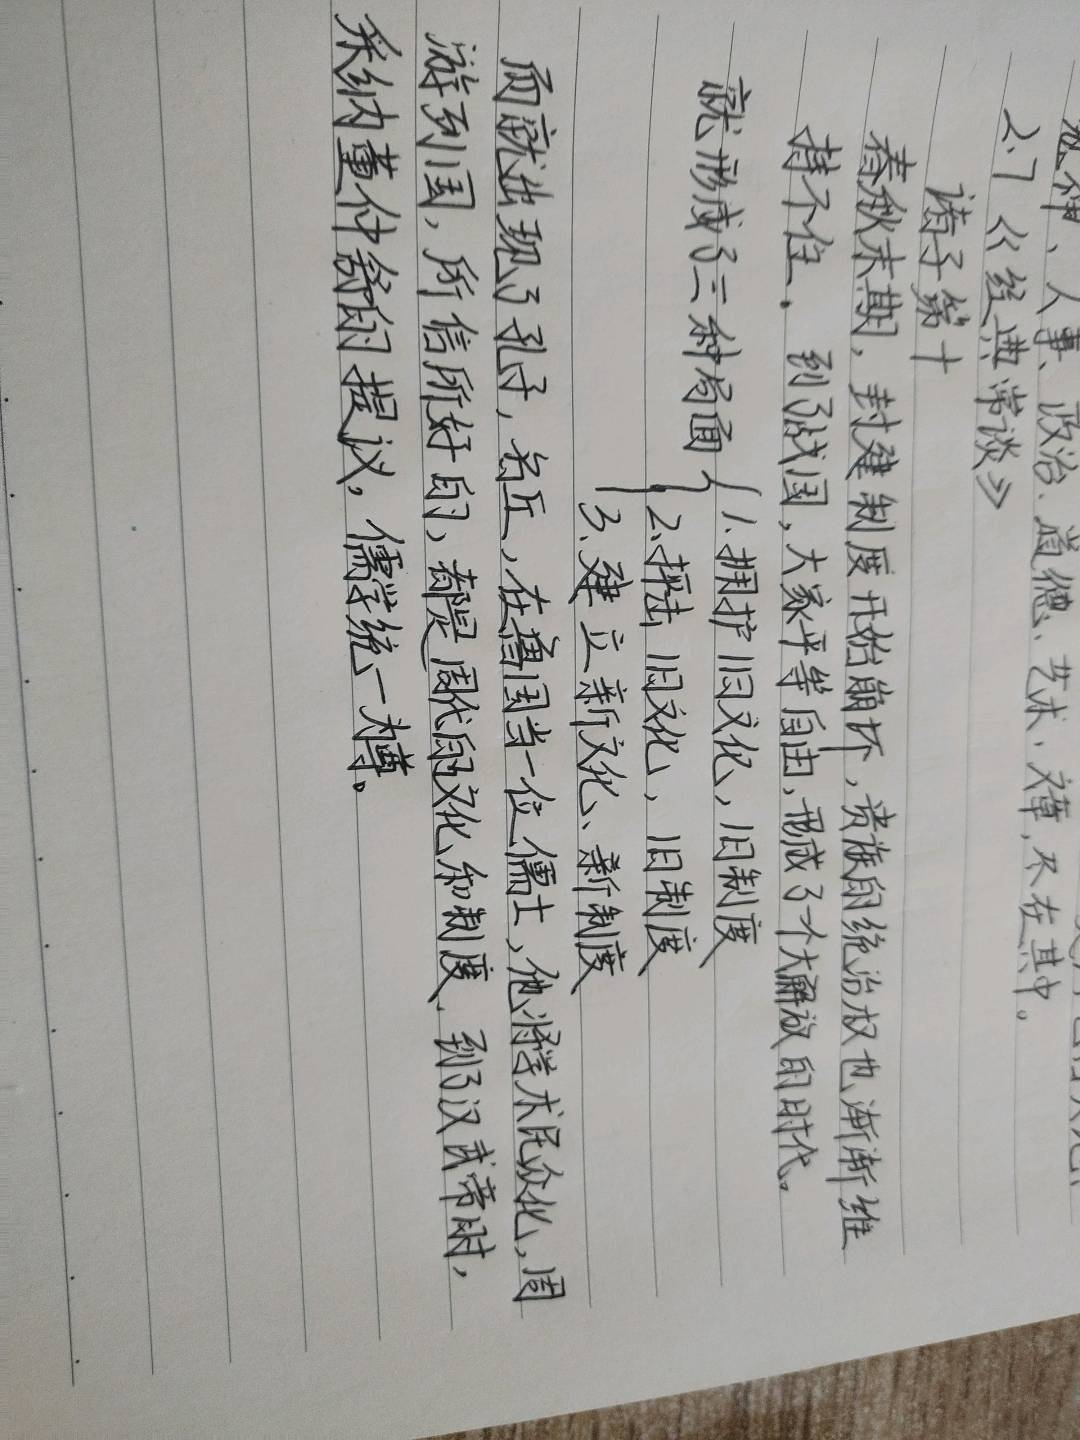 人事、政治、道德、艺术、文章,尽在其中。
2.7 《经典常谈》
诸子第十
春秋末期,封建制度开始崩坏,贵族的统治权也渐渐维
持不住,到了战国,大家平等自由,形成了一个大解放的时代。
就形成了三种局面 { 1.拥护旧文化,旧制度
2.抨击旧文化,旧制度
3.建立新文化、新制度
而就出现了孔子,名丘,在鲁国当一位儒士,他将学术民众化,周
游列国,所信所好的,都是周代的文化和制度,到了汉武帝时,
采纳董仲舒的提议,儒学统一为尊。